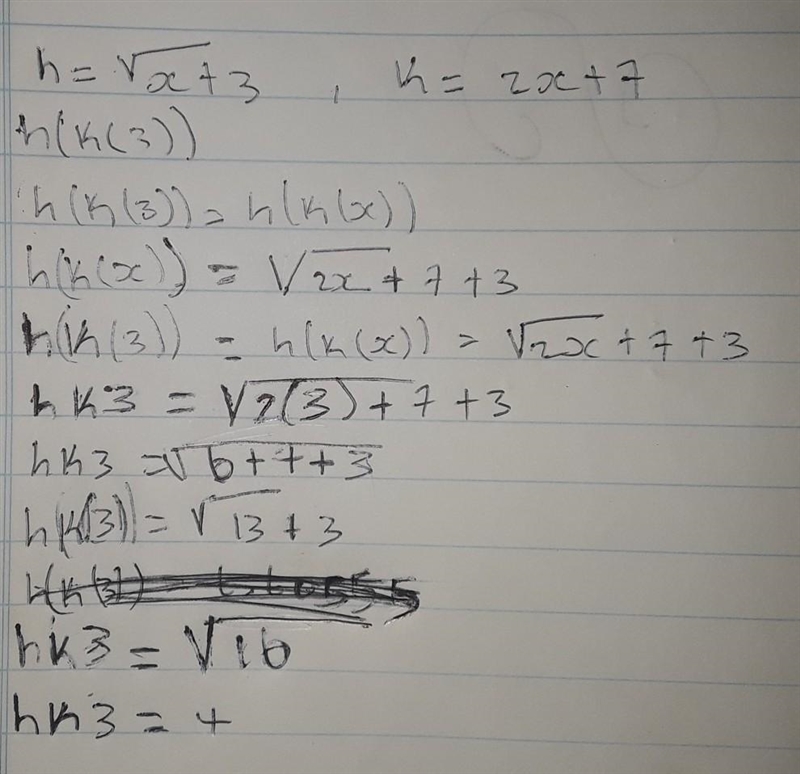 h = √x + 3 , k = 2x + 7
h(k(3))
h(k(3)) = h(k(x))
h(k(x)) = √2x + 7 + 3
h(k(3)) = h(k(x)) = √2x + 7 + 3
hk3 = √2(3) + 7 + 3
hk3 = √6 + 7 + 3
h(k(3)) = √13 + 3
h(k(3)
hk3 = √16
hk3 = 4